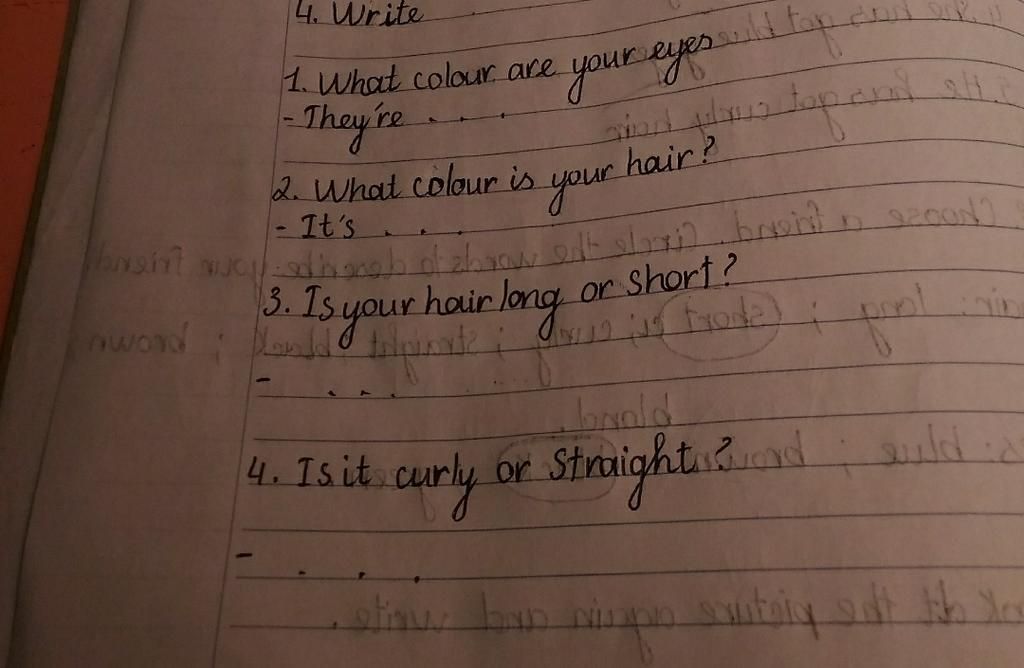 4. Write
1. What colour are your eyes
- They're . . .
2. What colour is your hair?
- It's . . .
3. Is your hair long or short?
- . . .
4. Is it curly or straight?
- . . .